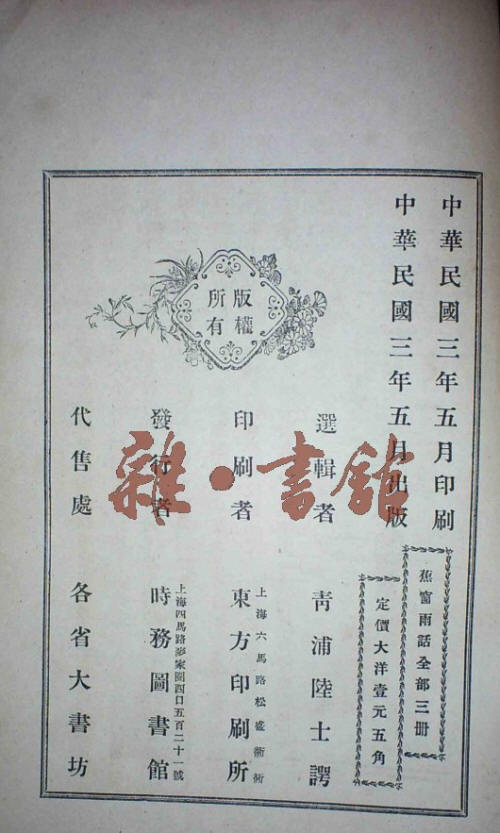 中華民國三年五月印刷
中華民國三年五月出版
蕉窗雨話全部三冊
定價大洋壹元五角
版權
所有
選輯者 青浦陸士諤
印刷者 上海六馬路松盛衖衖
東方印刷所
發行者 上海四馬路彭家圈西口五百二十一號
時務圖書館
代售處 各省大書坊
雜·書館